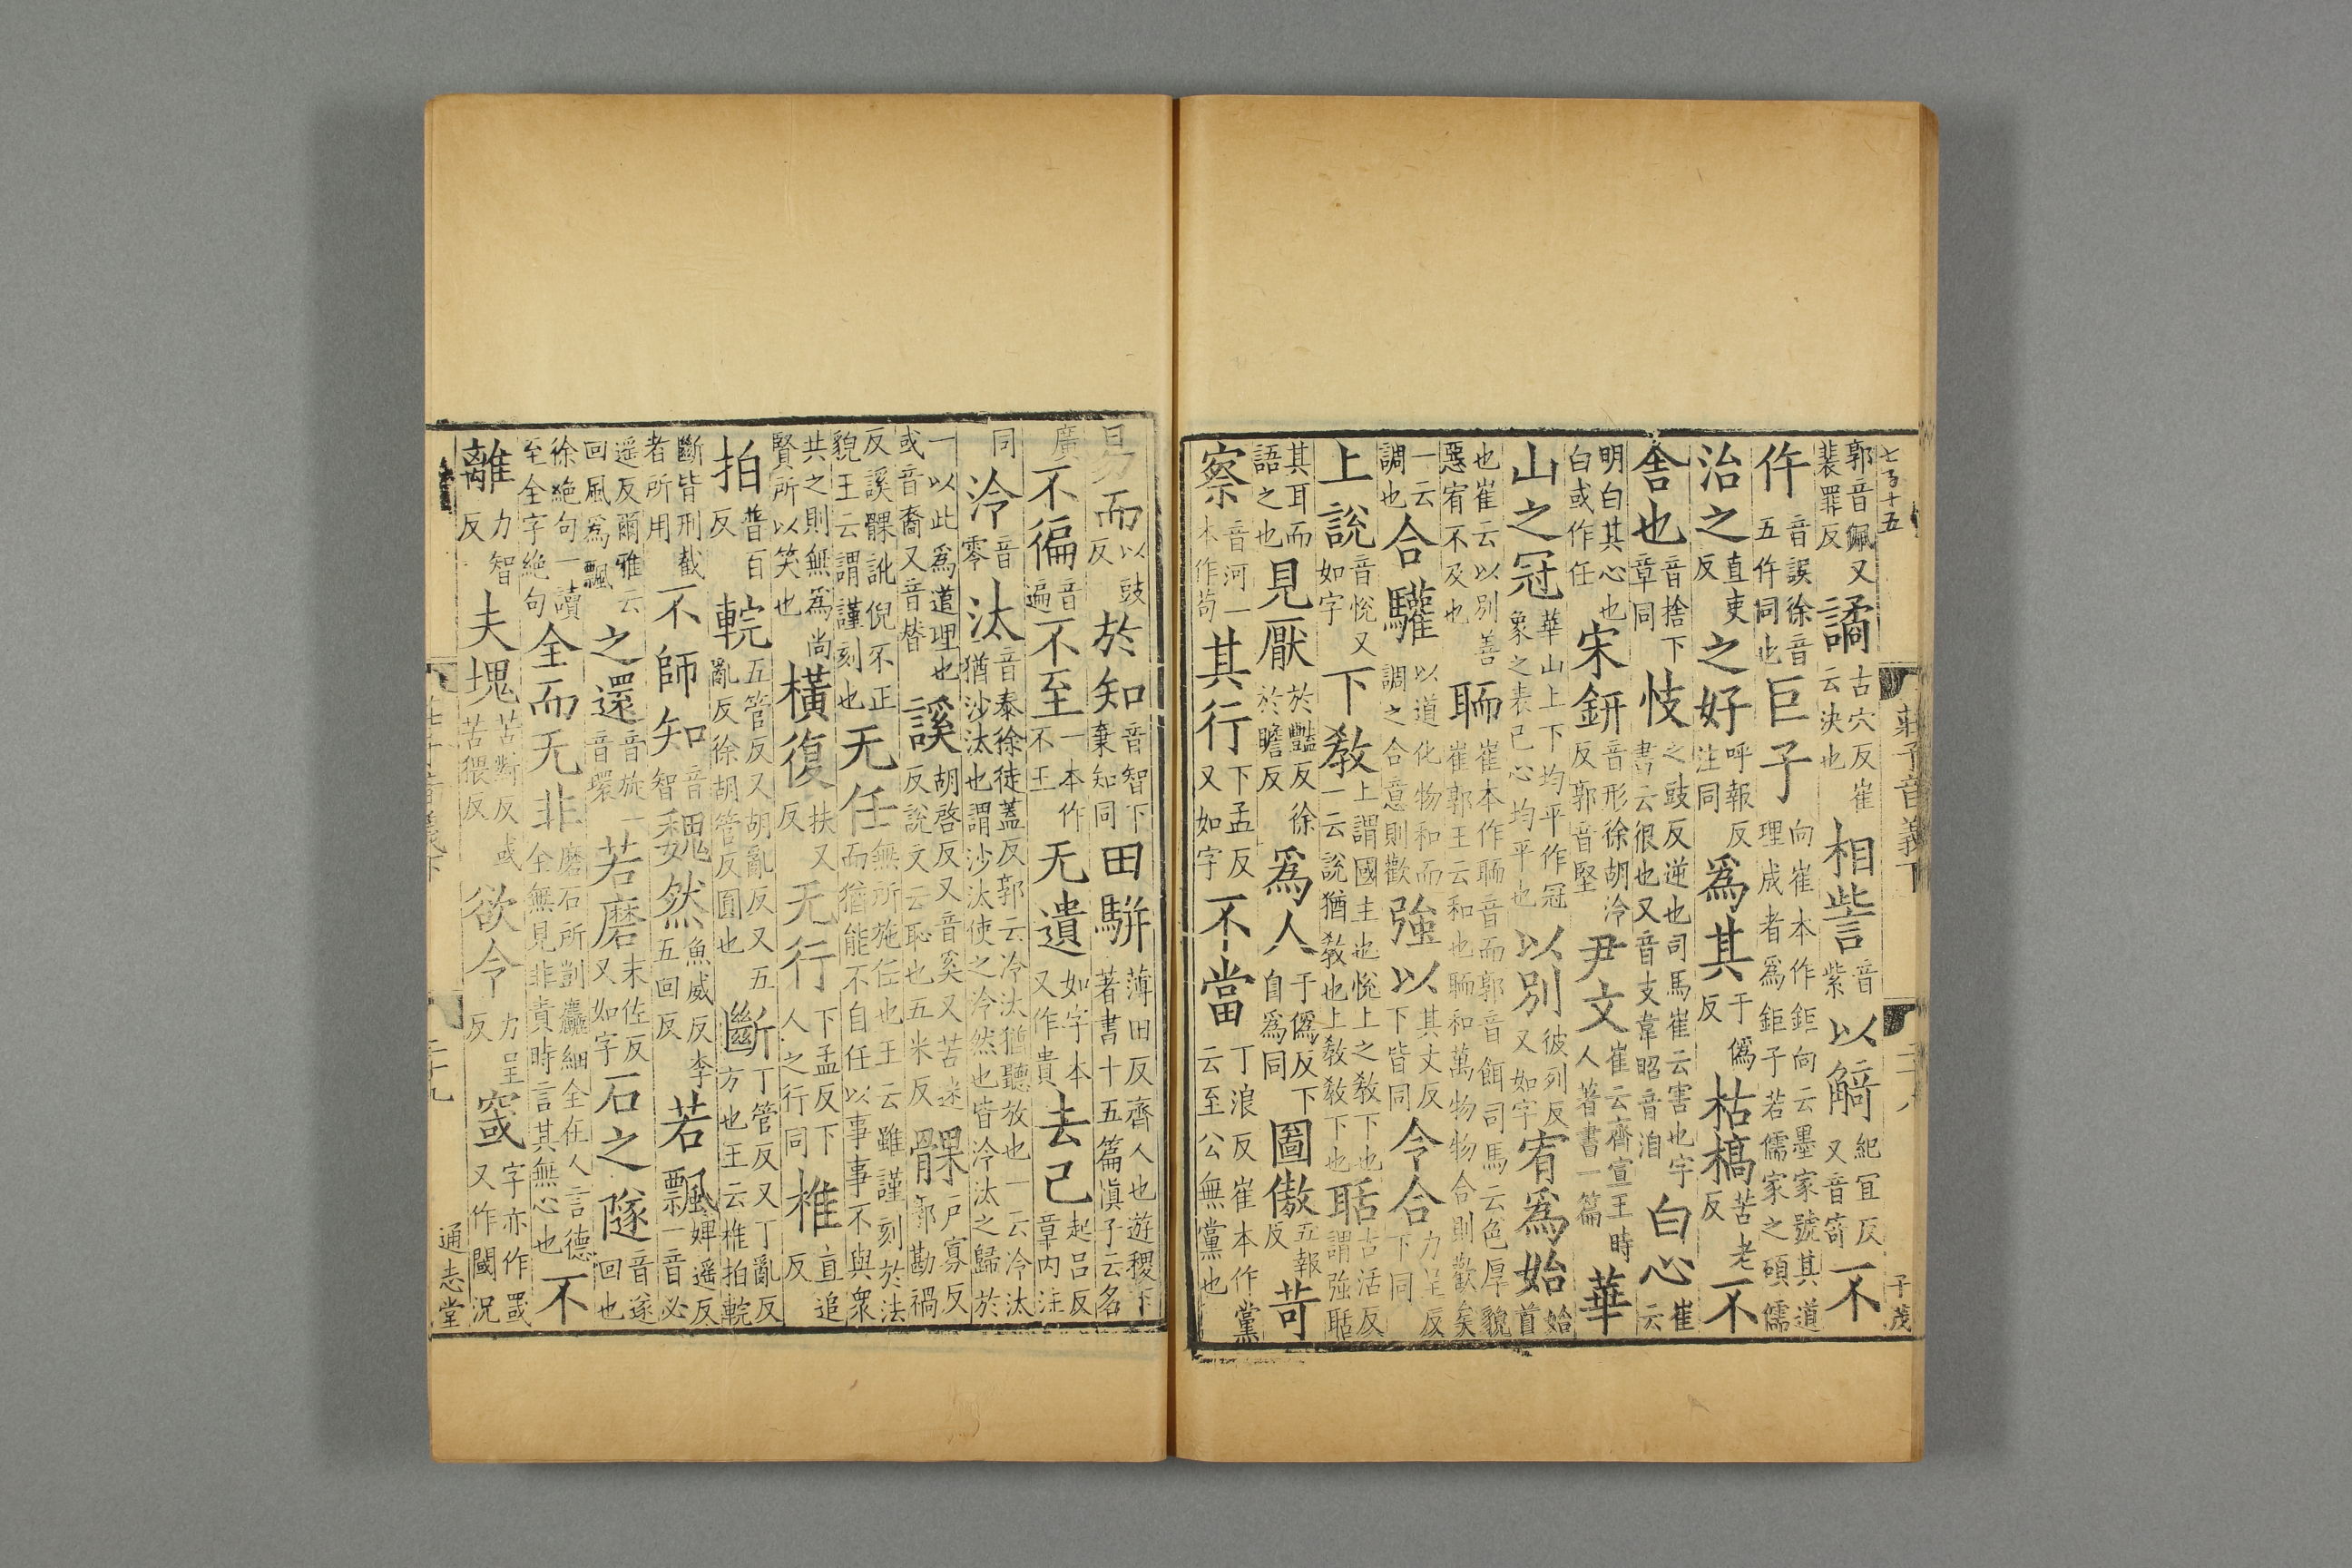 七百十五 莊子音義下 二十八 子茂
郭音佩又裴罪反 譎 古穴反崔云決也 相訾 音紫 以觭 紀宜反又音寄 不
仵 音誤徐音五仵同也 巨子 向崔本作鉅向云墨家號其道理成者爲鉅子若儒家之碩儒
治之 直吏反 之好 呼報反注同 爲其 于僞反 枯槁 苦老反 不
舍也 音捨下章同 忮 之豉反逆也司馬崔云害也字書云很也又音支韋昭音洎 白心 崔云
明白其心也白或作任 宋鈃 音形徐胡冷反郭音堅 尹文 崔云齊宣王時人著書一篇 華
山之冠 華山上下均平作冠象之表己心均平也 以別 彼列反又如字 宥爲始 始首
也崔云以別善惡宥不及也 聏 崔本作聏音而郭音餌司馬云色厚貌崔郭王云和也聏和萬物物合則歡矣
一云調也 合驩 以道化物和而調之合意則歡 強以 其丈反下皆同 令合 力呈反下同
上說 音悅又如字 下教 上謂國主也悅上之教下也一云說猶教也上教教下也 聒 古活反謂強聒
其耳而語之也 見厭 於豔反徐於贍反 爲人 于僞反下自爲同 圖傲 五報反 苛
察 音河一本作苟 其行 下孟反又如字 不當 丁浪反崔本作黨云至公無黨也
易而 以豉反 於知 音智下棄知同 田駢 薄田反齊人也遊稷下著書十五篇愼子云名
廣 不徧 音遍 不至 一本作不王 无遺 如字本又作貴 去己 起呂反章内注
同 泠 音零 汰 音泰徐徒蓋反郭云泠汰猶聽放也一云泠汰猶沙汰也謂沙汰使之泠然也皆泠汰之歸於
一以此爲道理也或音裔又音替 謑 胡啓反又音奚又苦迷反說文云恥也五米反 髁 戶寡反郭勘禍
反謑髁訛倪不正貌王云謂謹刻也 无任 無所施任也王云雖謹刻於法而猶能不自任以事事不與衆
共之則無爲尚賢所以笑也 橫復 扶又反 无行 下孟反下人之行同 椎 直追反
拍 普百反 輐 五管反又胡亂反又五亂反徐胡管反圓也 斷 丁管反又丁亂反方也王云椎拍輐
斷皆刑截者所用 不師知 音智 魏然 魚威反李五回反 若飄 婢遥反一音必
遥反爾雅云回風爲飄 之還 音旋一音環 若磨 末佐反又如字 石之隧 音遂回也
徐絶句一讀至全字絶句 全而无非 磨石所剴麤細全在人言德全無見非責時言其無心也 不
離 力智反 夫塊 苦對反或苦猥反 欲令 力呈反 窢 字亦作罭又作閾況
莊子音義下 二十九 通志堂